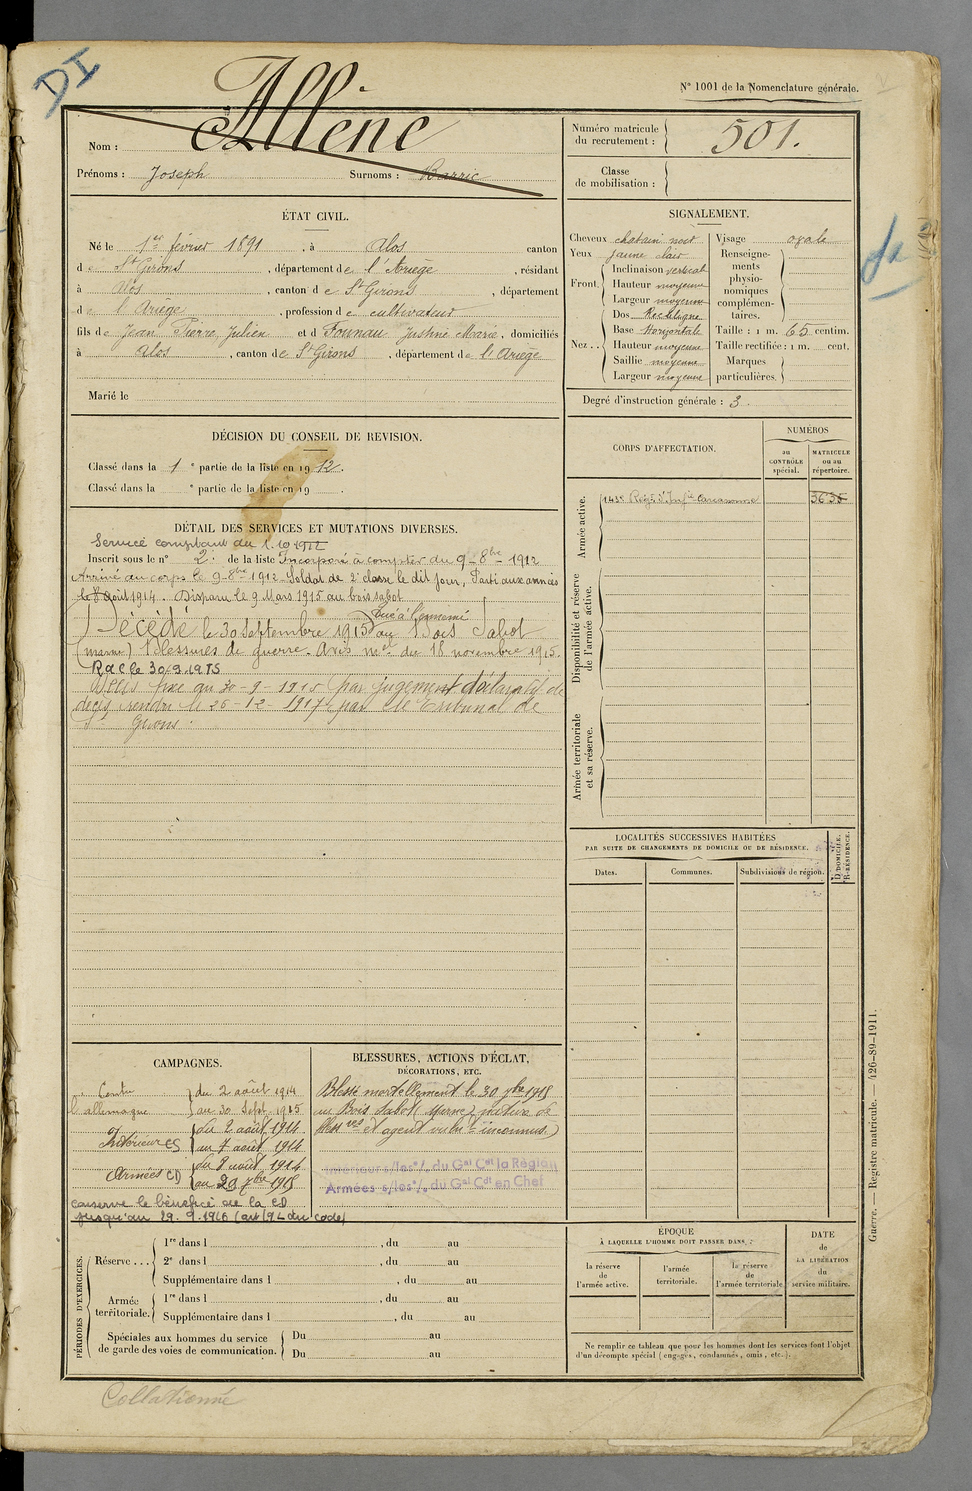 DI
N° 1001 de la Nomenclature générale.
Nom : Allène
Prénoms : Joseph Surnoms : Barric
Numéro matricule du recrutement : 501.
Classe de mobilisation :
ÉTAT CIVIL.
Né le 1er février 1891, à Alos canton
de St Girons, département de l'Ariège, résidant
à Alos, canton de St Girons, département
de l'Ariège, profession de cultivateur
fils de Jean Pierre Julien et de Founau Justine Marie, domiciliés
à Alos, canton de St Girons, département de l'Ariège
Marié le
SIGNALEMENT.
Cheveux chatain noir
Yeux jaune clair
Front. Inclinaison vertical
Hauteur moyenne
Largeur moyenne
Nez.. Dos Rectiligne
Base Horizontale
Hauteur moyenne
Saillie moyenne
Largeur moyenne
Visage ovale
Renseignements physionomiques complémentaires.
Taille : 1 m. 65 centim.
Taille rectifiée : 1 m. cent.
Marques particulières.
Degré d'instruction générale : 3.
DÉCISION DU CONSEIL DE REVISION.
Classé dans la 1e partie de la liste en 1912.
Classé dans la e partie de la liste en 19 .
CORPS D'AFFECTATION.
NUMÉROS
au CONTRÔLE spécial.
MATRICULE ou au répertoire.
Armée active.
143e Régt d'Infie Carcassonne 3635
Disponibilité et réserve de l'armée active.
Armée territoriale et sa réserve.
DÉTAIL DES SERVICES ET MUTATIONS DIVERSES.
Service comptant du 1.10.1912
Inscrit sous le n° 2 de la liste Incorporé à compter du 9-8bre 1912
Arrivé au corps le 9-8bre 1912. Soldat de 2e classe le dit jour, Parti aux armées
le 8 août 1914. Disparu le 9 Mars 1915 au bois sabot
tué à l'ennemi
Décédé le 30 septembre 1915 au Bois Sabot
(marne) Blessures de guerre. Avis mel du 18 novembre 1915.
R.d.C le 30.9.1915
Décès fixé au 30-9-1915 par jugement déclaratif de
décès rendu le 26-12-1917 par le Tribunal de
St Girons.
LOCALITÉS SUCCESSIVES HABITÉES
PAR SUITE DE CHANGEMENTS DE DOMICILE OU DE RÉSIDENCE.
Dates. Communes. Subdivisions de région. D. DOMICILE. R. RÉSIDENCE.
CAMPAGNES.
Contre l'allemagne du 2 août 1914
au 30 Sept. 1915
Intérieur CS du 2 août 1914.
au 7 août 1914
Armées CD du 8 août 1914
au 30 7bre 1915
conserve le bénéfice de la CD
jusqu'au 29.9.1916 (art 19 L du code)
BLESSURES, ACTIONS D'ÉCLAT,
DÉCORATIONS, ETC.
Blessé mortellement le 30 7bre 1915
au Bois Sabot (Marne) nature de
bless res et agent vuln t inconnus.)
Intérieur s/les o/. du Gal Cdt la Région
Armées s/les o/. du Gal Cdt en Chef
PÉRIODES D'EXERCICES.
Réserve.... 1re dans l , du au
2e dans l , du au
Supplémentaire dans l , du au
Armée territoriale. 1re dans l , du au
Supplémentaire dans l , du au
Spéciales aux hommes du service de garde des voies de communication. Du au
Du au
ÉPOQUE
À LAQUELLE L'HOMME DOIT PASSER DANS :
la réserve de l'armée active.
l'armée territoriale.
la réserve de l'armée territoriale.
DATE de LA LIBÉRATION du service militaire.
Ne remplir ce tableau que pour les hommes dont les services font l'objet
d'un décompte spécial (engagés, condamnés, omis, etc.).
Guerre. — Registre matricule. — 426-89-1911.
Collationné